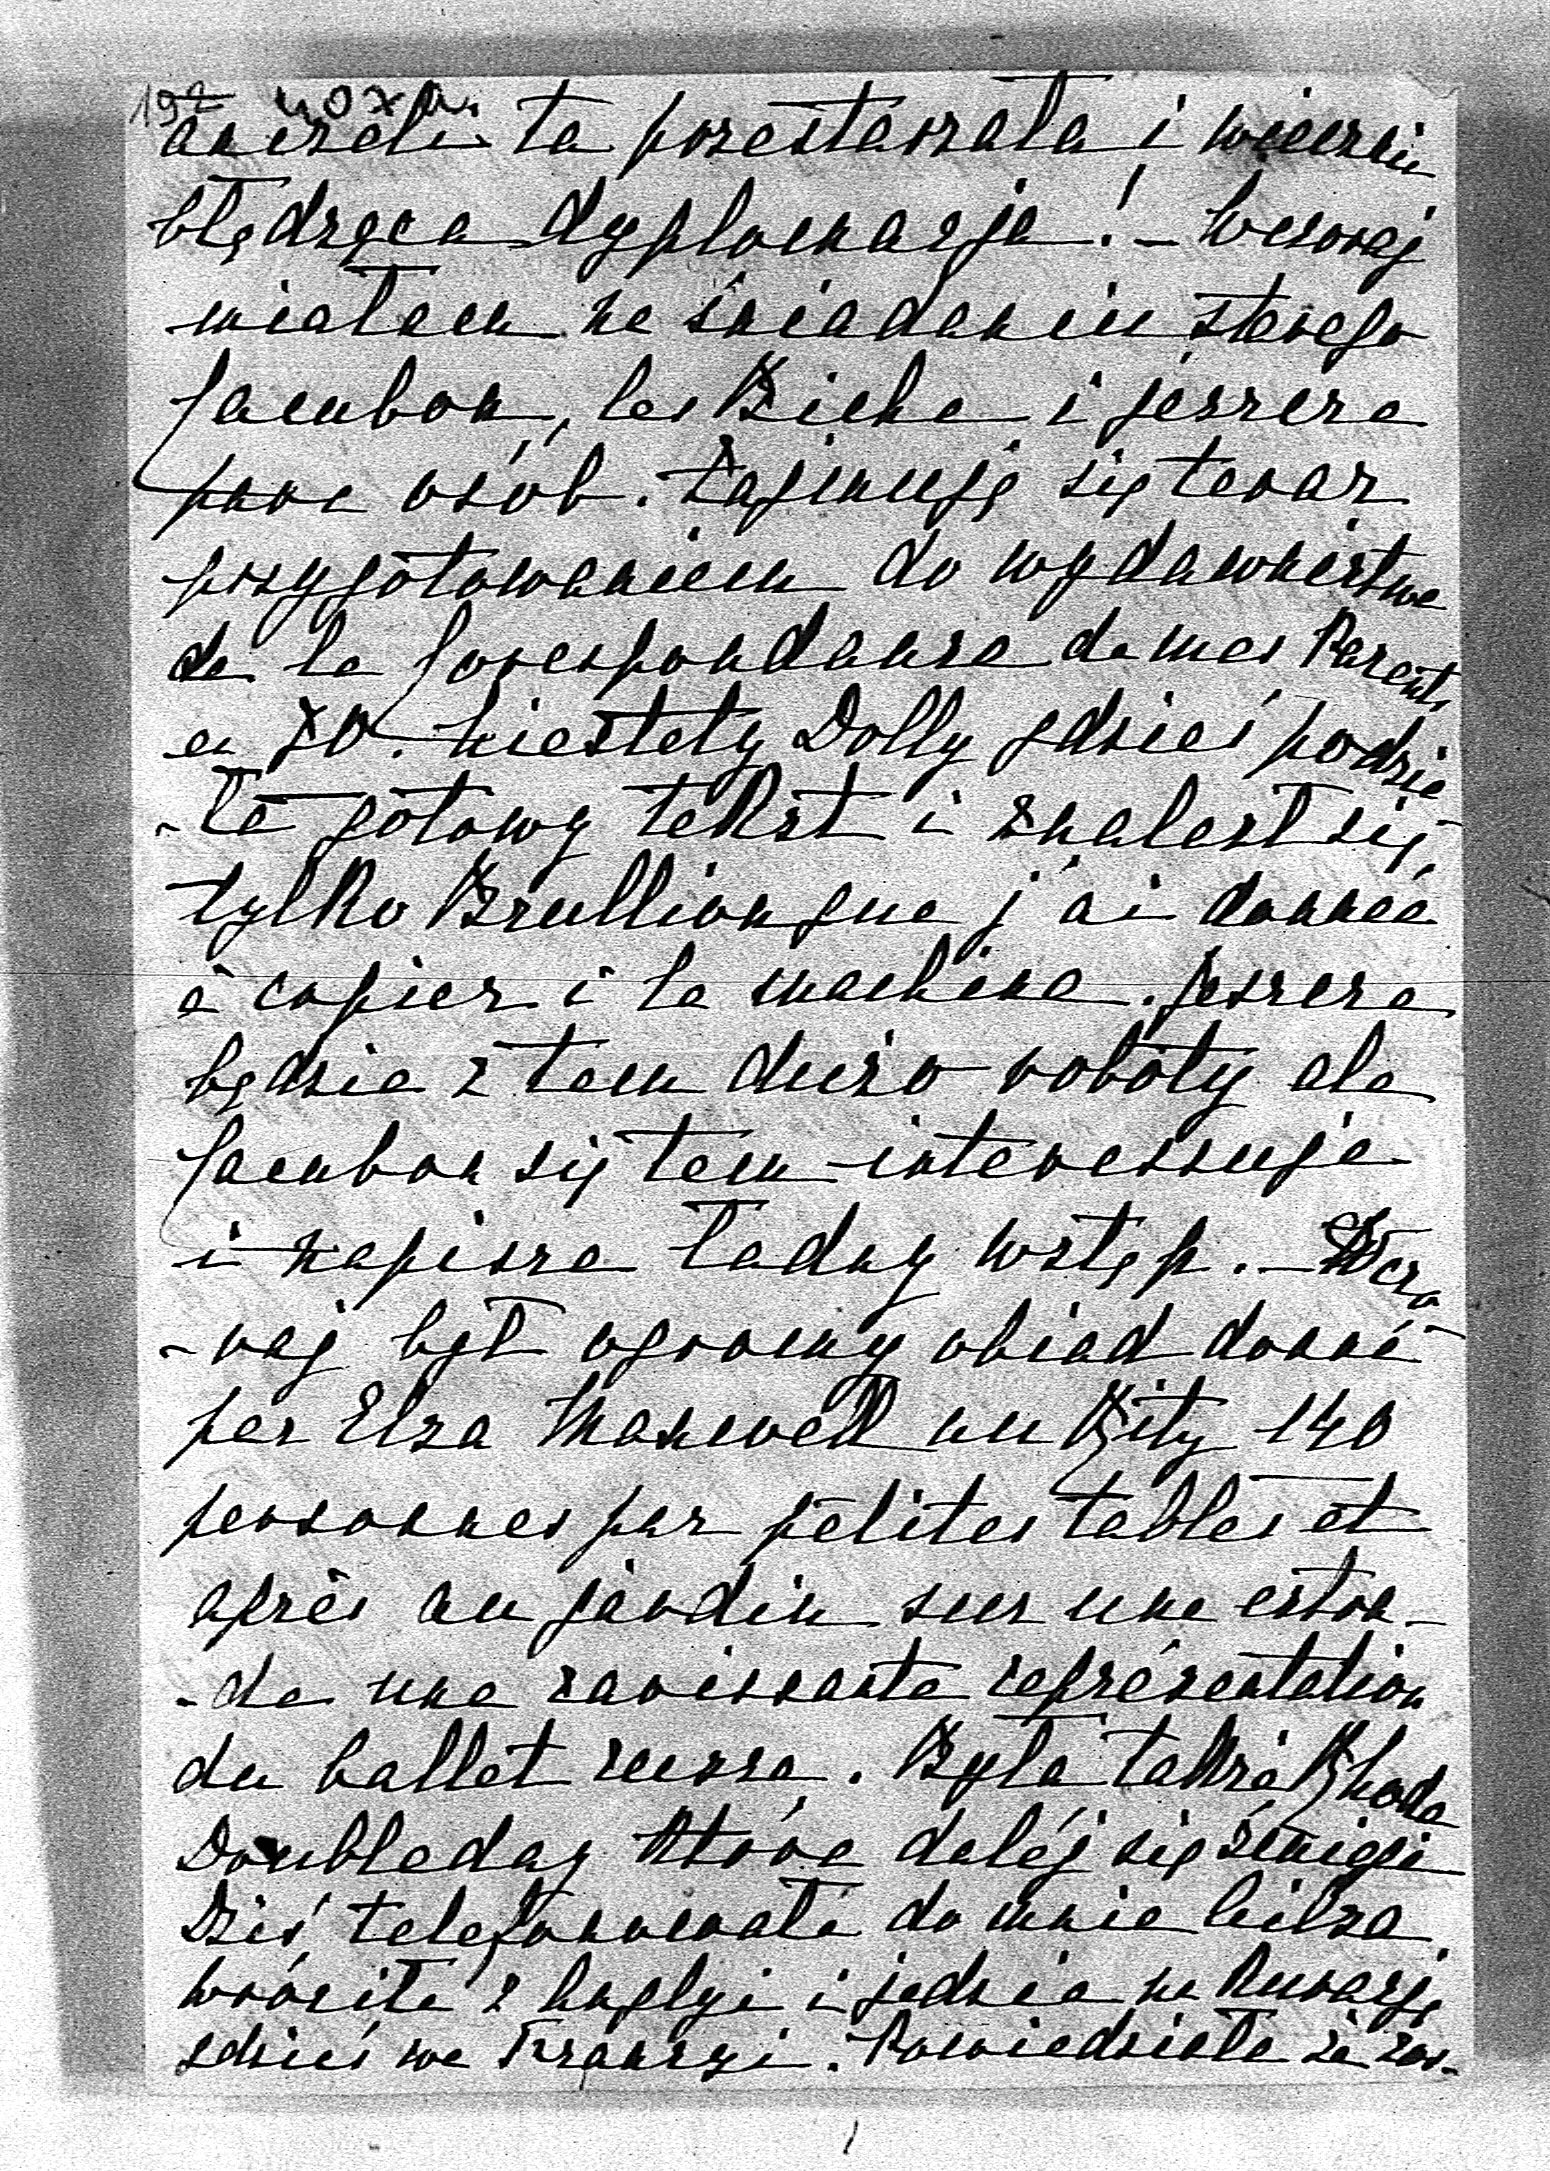 192
aniżeli ta przestarzała i wiecznie
błędząca dyplomacja! – Wczoraj
miałem na śniadaniu starego
Jacubon, les Bieke i jeszcze
parę osób. Zajmuję się teraz
przygotowaniem do wydawnictwa
de la Correspondance de mes Parents
en 70. Niestety Dolly gdzieś podzia
-ła gotowy tekst i znalazł się
tylko Brullion que j'ai donnée
à copier à la machine. Jeszcze
będzie z tem dużo roboty ale
Jacubon się tem interessuje
i napisze ładny wstęp. – Wczo
-raj był ogromny obiad donné
par Elza Maxwell au Rity 140
personnes par petites tables et
après au jardin sur une estra-
-de une ravissante représentation
du ballet russe. Była także Rhoda
Doubleday która daléj się
Dziś telefonowała do mnie
wróciła z Anglyi i jedzie na Kurację
gdzieś we Francyi. Powiedziała że zos-